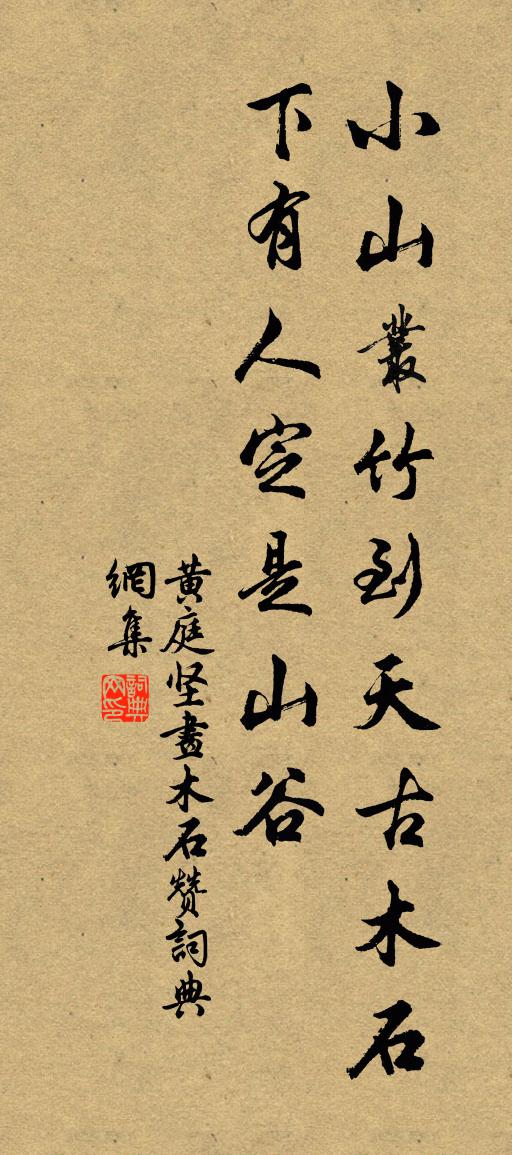 小山叢竹到天古木石
下有人定是山谷
黄庭坚畫木石贊詞典
網集
詞典